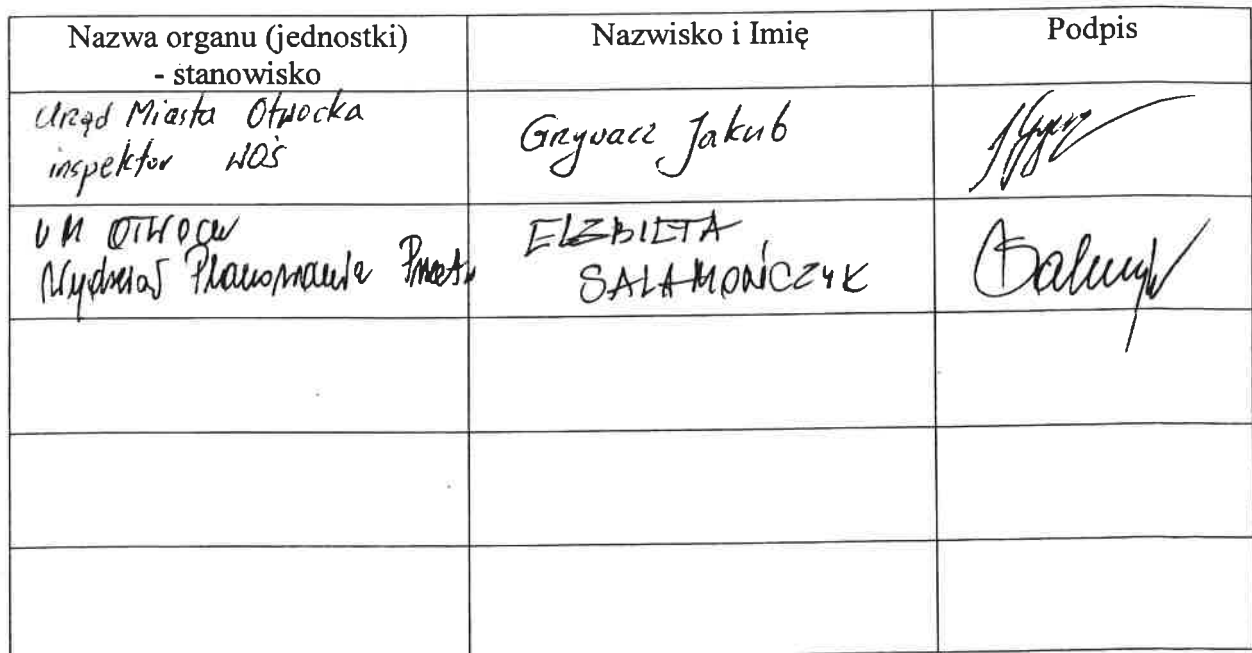 Nazwa organu (jednostki)
- stanowisko
Nazwisko i Imię
Podpis
Urząd Miasta Otwocka
inspektor WOŚ
Grywacz Jakub
UM OTWOCK
Wydział Planowania Przest.
ELŻBIETA
SALAMOŃCZYK